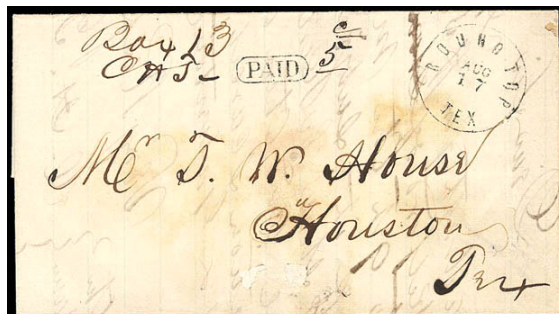 Box 13
PAID
5
ROUND TOP
AUG
17
TEX
Mr T. W. House
Houston
Tex